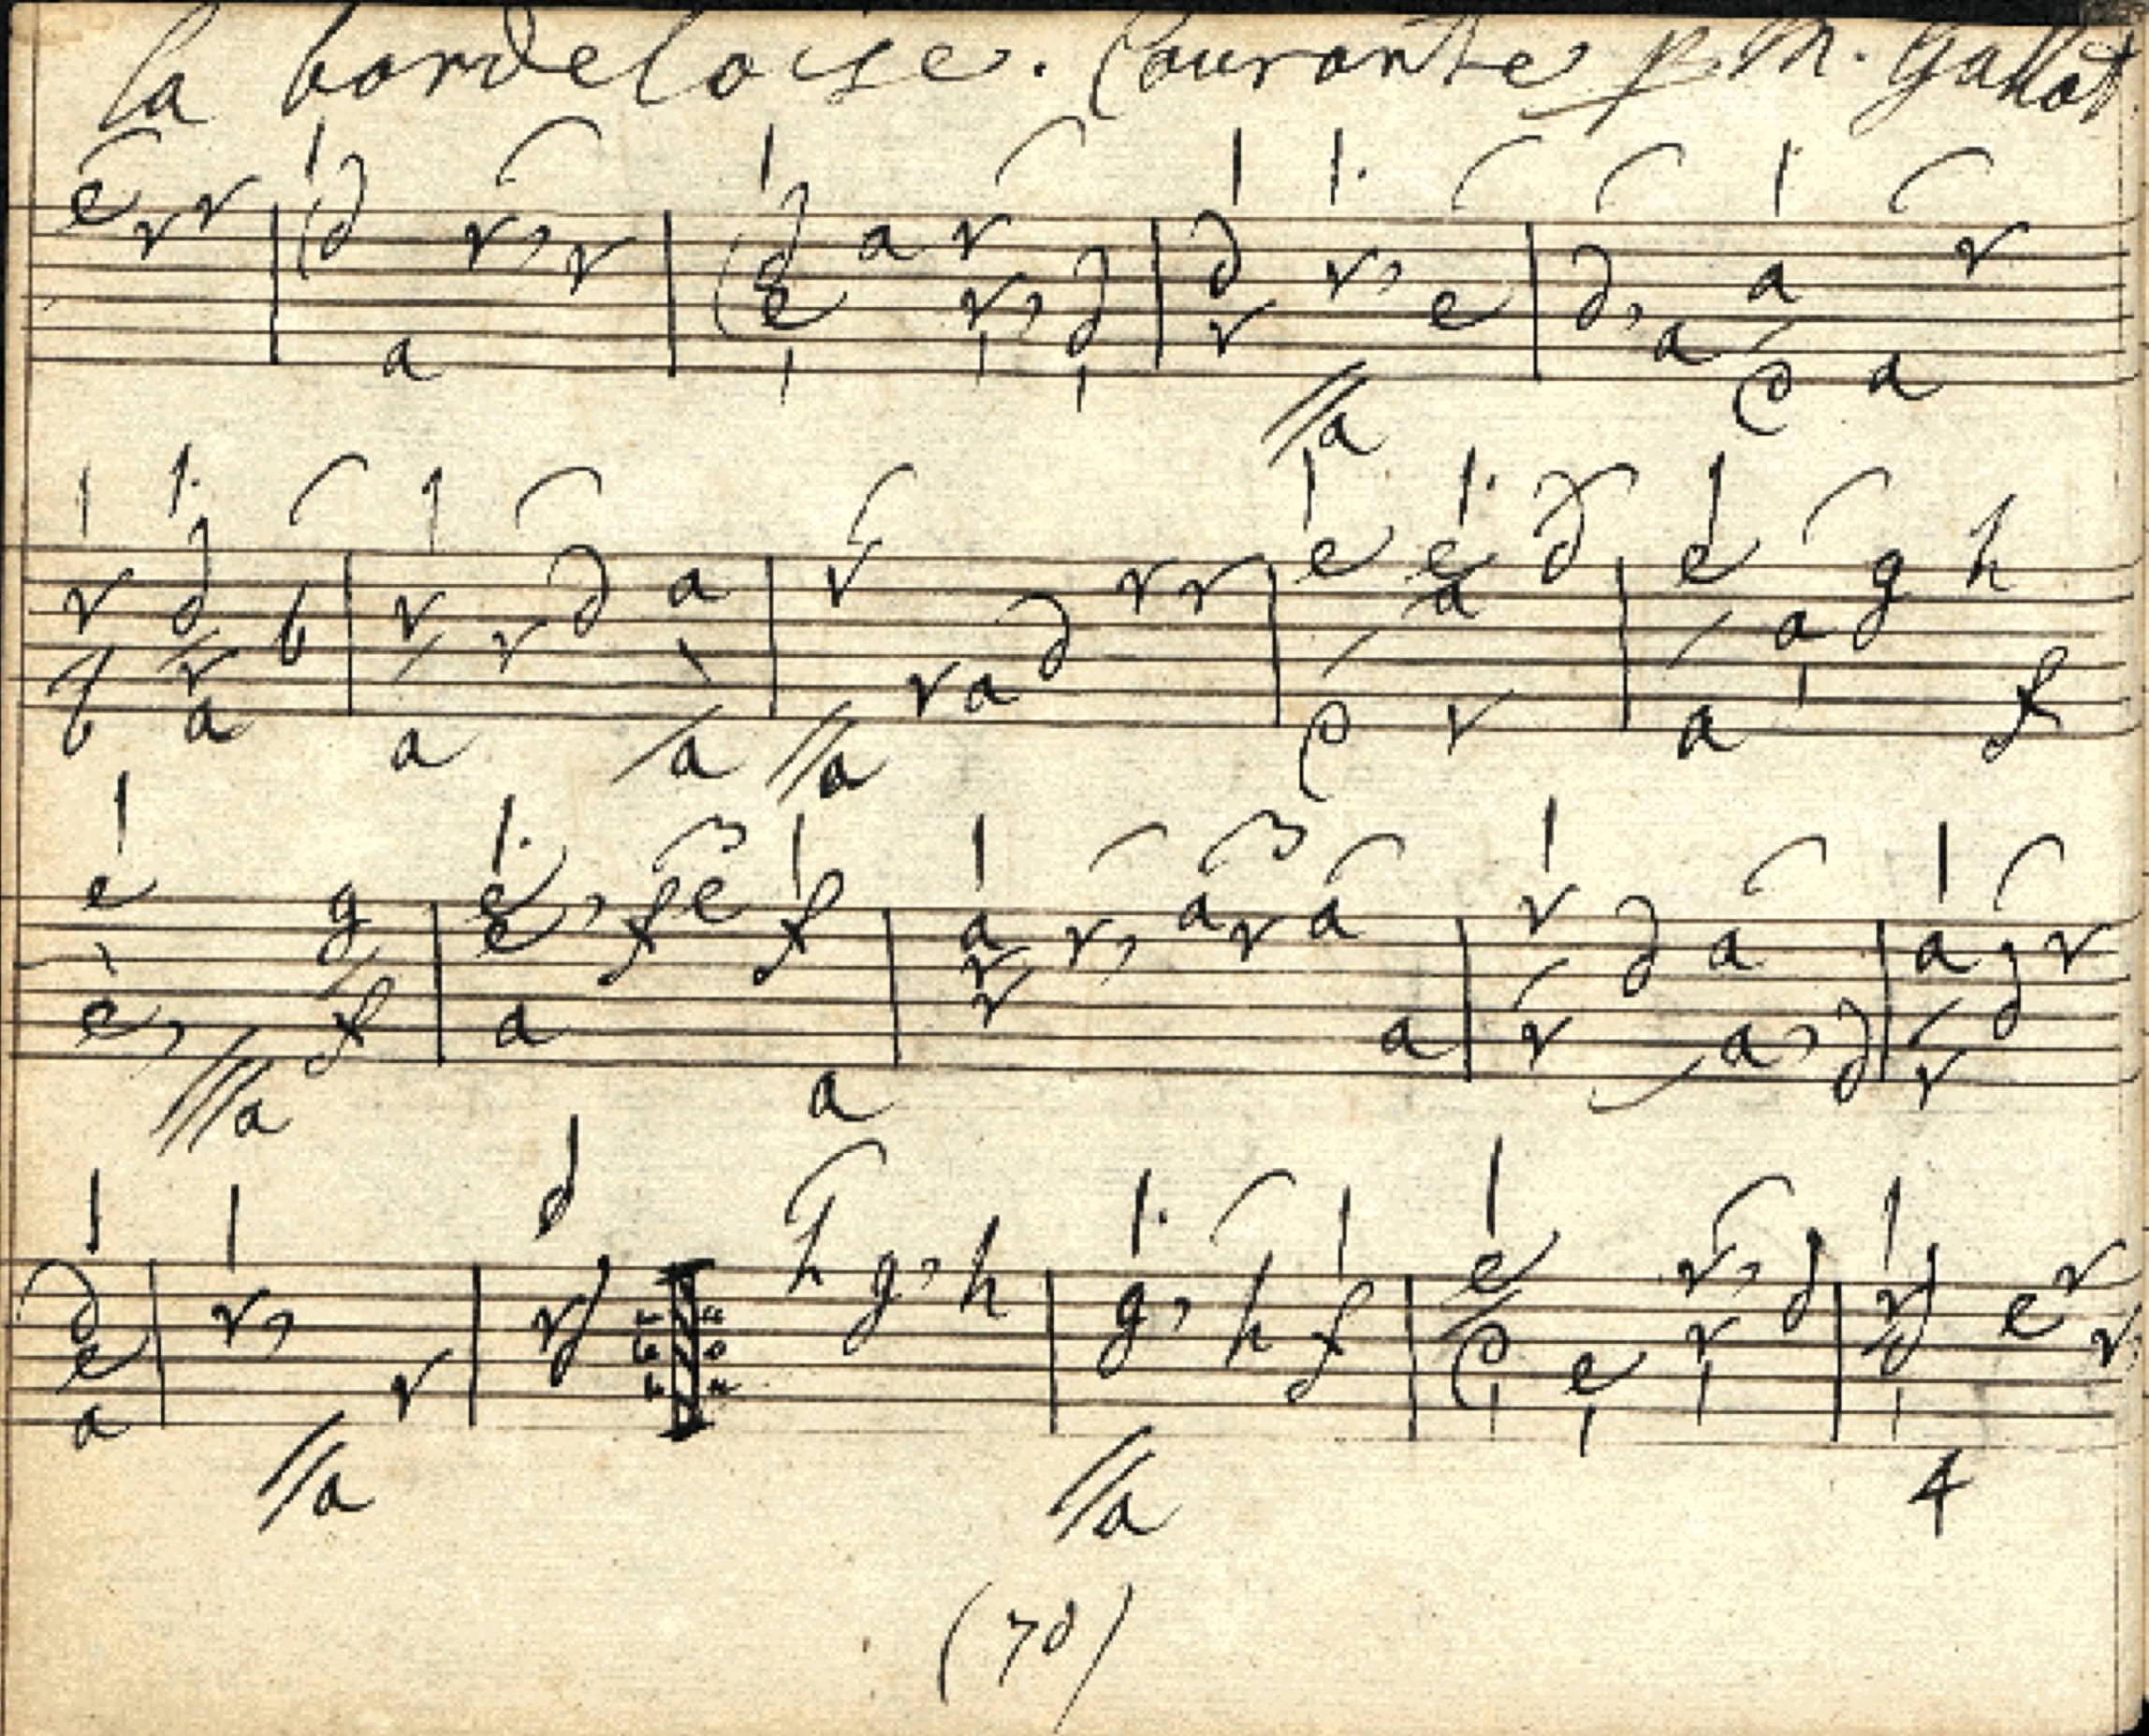 la bordeloise. Courante p M. Gallot.
e r r d a r, r d e e a r r, d d r r, //a e d, a a e a r
r d r a b r a r d a /a //a r a d r r e e e a r d e a a g h f
e e, ///a g f e e a, f e f a a r r r, a r a a r r d a a, d a r d r
d e a r, //a r d r d h g, h g, //a h f e e e r, r d r d 4 e r r
(70)